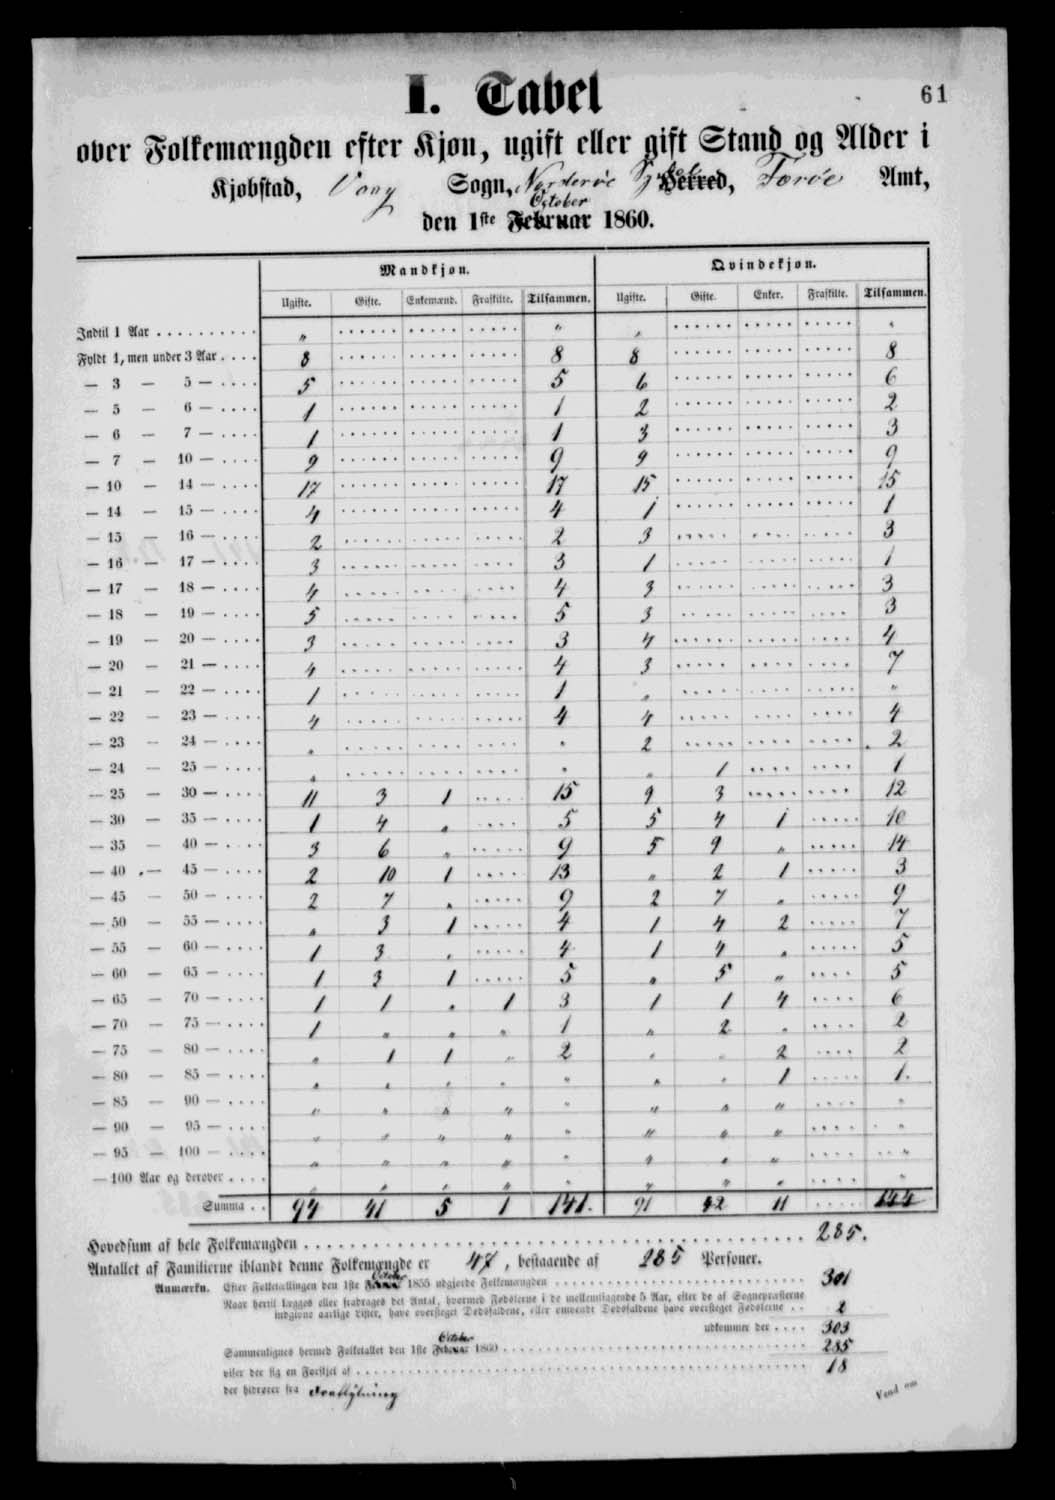 61
I. Tabel
over Folkemængden efter Kjøn, ugift eller gift Stand og Alder i
Kjøbstad, Vaag Sogn, Norderøe Herred, Færøe Amt,
October
den 1ste Februar 1860.
Mandkjøn. Qvindekjøn.
Ugifte. Gifte. Enkemænd. Fraskilte. Tilsammen. Ugifte. Gifte. Enker. Fraskilte. Tilsammen.
Indtil 1 Aar . . . . . . . . . . " " " "
Fyldt 1, men under 3 Aar . . . . 8 8 8 8
— 3 — 5 — . . . . 5 5 6 6
— 5 — 6 — . . . . 1 1 2 2
— 6 — 7 — . . . . 1 1 3 3
— 7 — 10 — . . . . 9 9 9 9
— 10 — 14 — . . . . 17 17 15 15
— 14 — 15 — . . . . 4 4 1 1
— 15 — 16 — . . . . 2 2 3 3
— 16 — 17 — . . . . 3 3 1 1
— 17 — 18 — . . . . 4 4 3 3
— 18 — 19 — . . . . 5 5 3 3
— 19 — 20 — . . . . 3 3 4 4
— 20 — 21 — . . . . 4 4 3 7
— 21 — 22 — . . . . 1 1 " "
— 22 — 23 — . . . . 4 4 4 4
— 23 — 24 — . . . . " " 2 2
— 24 — 25 — . . . . " " " 1 1
— 25 — 30 — . . . . 11 3 1 15 9 3 12
— 30 — 35 — . . . . 1 4 " 5 5 4 1 10
— 35 — 40 — . . . . 3 6 " 9 5 9 " 14
— 40 — 45 — . . . . 2 10 1 13 " 2 1 3
— 45 — 50 — . . . . 2 7 " 9 2 7 " 9
— 50 — 55 — . . . . " 3 1 4 1 4 2 7
— 55 — 60 — . . . . 1 3 " 4 1 4 " 5
— 60 — 65 — . . . . 1 3 1 5 " 5 " 5
— 65 — 70 — . . . . 1 1 " 1 3 1 1 4 6
— 70 — 75 — . . . . 1 " " " 1 " 2 " 2
— 75 — 80 — . . . . " 1 1 " 2 " " 2 2
— 80 — 85 — . . . . " " " " " " " 1 1.
— 85 — 90 — . . . . " " " " " " " " "
— 90 — 95 — . . . . " " " " " " " " "
— 95 — 100 — . . . . " " " " " " " " "
— 100 Aar og derover . . . . " " " " " " " " "
Summa . . 94 41 5 1 141. 91 42 11 144
Hovedsum af hele Folkemængden . . . . 285.
Antallet af Familierne iblandt denne Folkemængde er 47, bestaaende af 285 Personer.
October
Anmærkn. Efter Folketællingen den 1ste Februar 1855 udgjorde Folkemængden . . . . 301
Naar hertil lægges eller fradrages det Antal, hvormed Fødslerne i de mellemliggende 5 Aar, efter de af Sognepræsterne
indgivne aarlige Lister, have oversteget Dødsfaldene, eller omvendt Dødsfaldene have oversteget Fødslerne . . 2
udkommer der . . . . 303
October
Sammenlignes hermed Folketallet den 1ste Februar 1860 . . . . 285
viser der sig en Forskjel af . . . . 18
der hidrører fra Fraflytning
Vend om